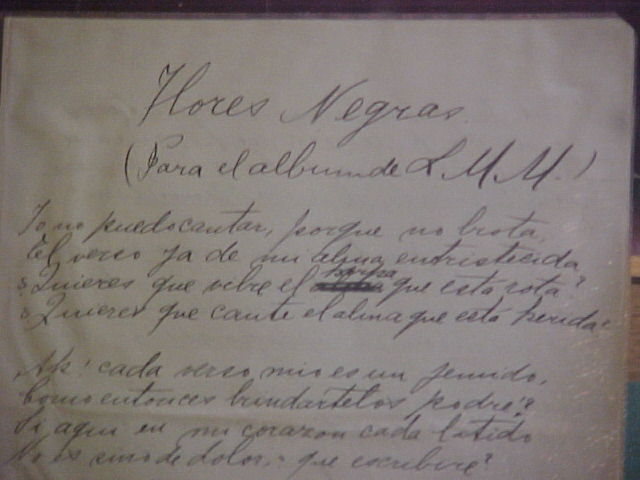 Flores Negras
(Para el album de L M M.)
Yo no puedo cantar, porque no brota,
El verso ya de mi alma entristecida,
¿Quieres que vibre el harpa que está rota?
¿Quieres que cante el alma que está herida?
¡Ah! cada verso mio es un jemido,
Como entonces brindartelos podré?
Si aqui en mi corazon cada latido
No es sino de dolor, que escribire?